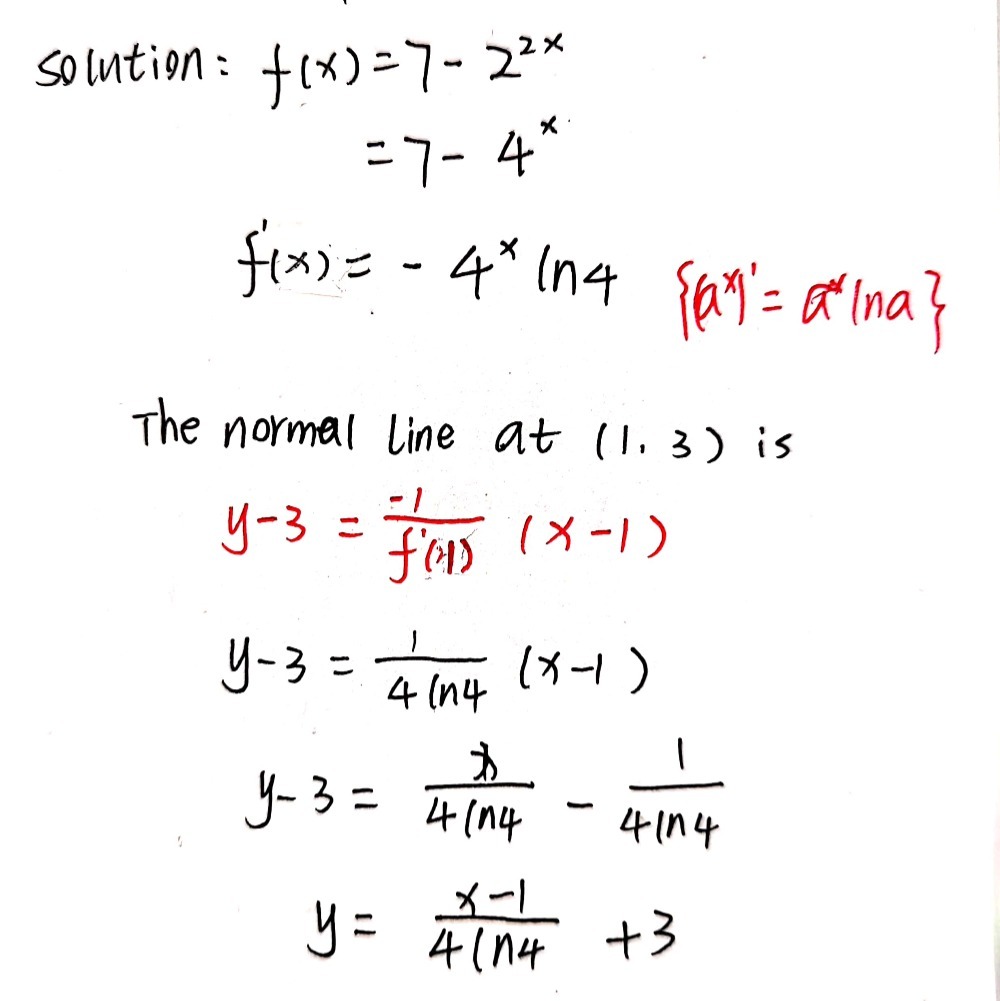 solution: f(x)=7-2^{2x}
=7-4^x
f'(x)=-4^x ln4 {(a^x)'=a^x lna}
The normal line at (1, 3) is
y-3=\frac{-1}{f'(1)}(x-1)
y-3=\frac{1}{4ln4}(x-1)
y-3=\frac{x}{4ln4}-\frac{1}{4ln4}
y=\frac{x-1}{4ln4}+3